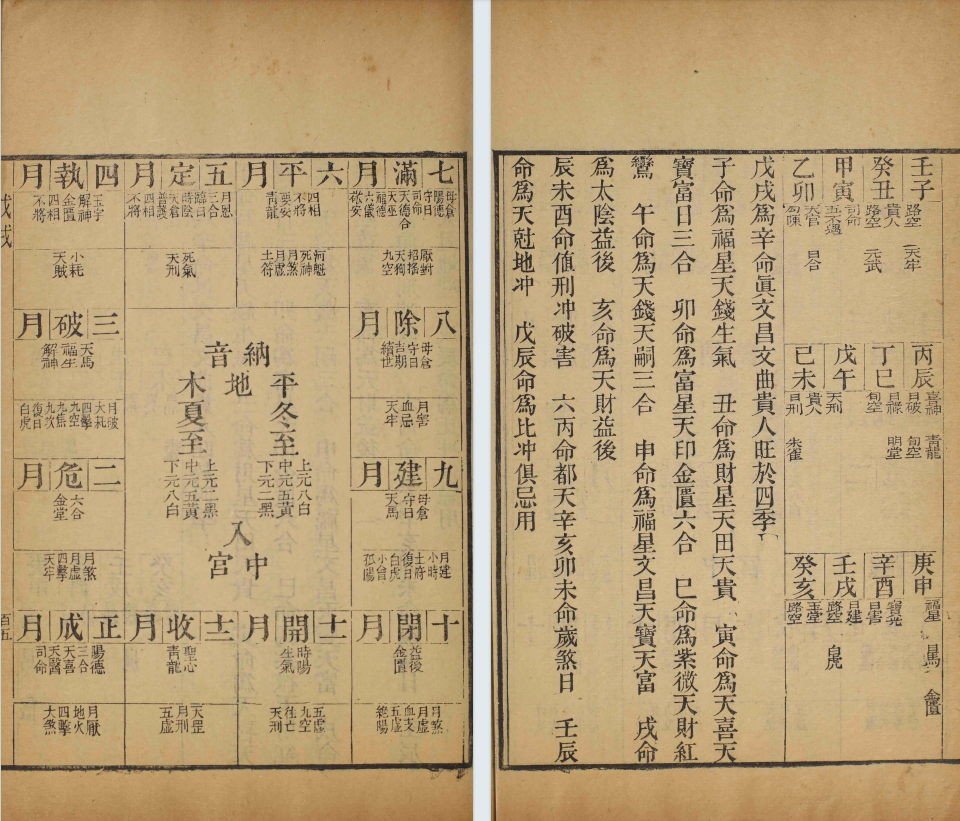 壬子
路空
天牢
癸丑
貴人
路空
元武
甲寅
司命
五不遇
乙卯
天官
勾陳
日合
丙辰
喜神
日破
青龍
旬空
丁巳
日祿
旬空
明堂
戊午
天刑
己未
貴人
日刑
朱雀
庚申
福星
金匱
辛酉
寶光
日害
壬戌
日建
路空
白虎
癸亥
玉堂
路空
戊戌爲辛命眞文昌文曲貴人旺於四季
子命爲福星天錢生氣　丑命爲財星天田天貴　寅命爲天喜天
寶富日三合　卯命爲富星天印金匱六合　巳命爲紫微天財紅
鸞　午命爲天錢天嗣三合　申命爲福星文昌天寶天富　戌命
爲太陰益後　亥命爲天財益後
辰未酉命値刑冲破害　六丙命都天辛亥卯未命歲煞日　壬辰
命爲天尅地冲　戊辰命爲比冲俱忌用
七滿月
母倉
陽德
守日
司命
天德合
天巫
福德
六儀
敬安
厭對
招搖
天狗
九空
六平月
四相
不將
要安
青龍
河魁
死神
月煞
月虛
土符
五定月
月恩
三合
臨日
時陰
天倉
普護
四相
不將
死氣
天刑
四執月
玉宇
解神
金匱
四相
不將
小耗
天賊
八除月
母倉
守日
吉期
續世
月害
血忌
天牢
三破月
天馬
福生
解神
月破
大耗
四擊
九空
九焦
九坎
復日
白虎
納音
地
平冬至
上元八白
中元五黃
下元二黑
木夏至
上元二黑
中元五黃
下元八白
入中宮
九建月
母倉
守日
天馬
月建
小時
土府
復日
白虎
小會
孤陽
二危月
六合
金堂
月煞
月虛
四擊
天牢
十閉月
益後
金匱
月煞
月虛
血支
五虛
絕陽
十一開月
時陽
生氣
五虛
九空
往亡
天刑
十二收月
聖心
青龍
天罡
月刑
五虛
正成月
陽德
三合
天喜
天醫
司命
月厭
地火
四擊
大煞
百五